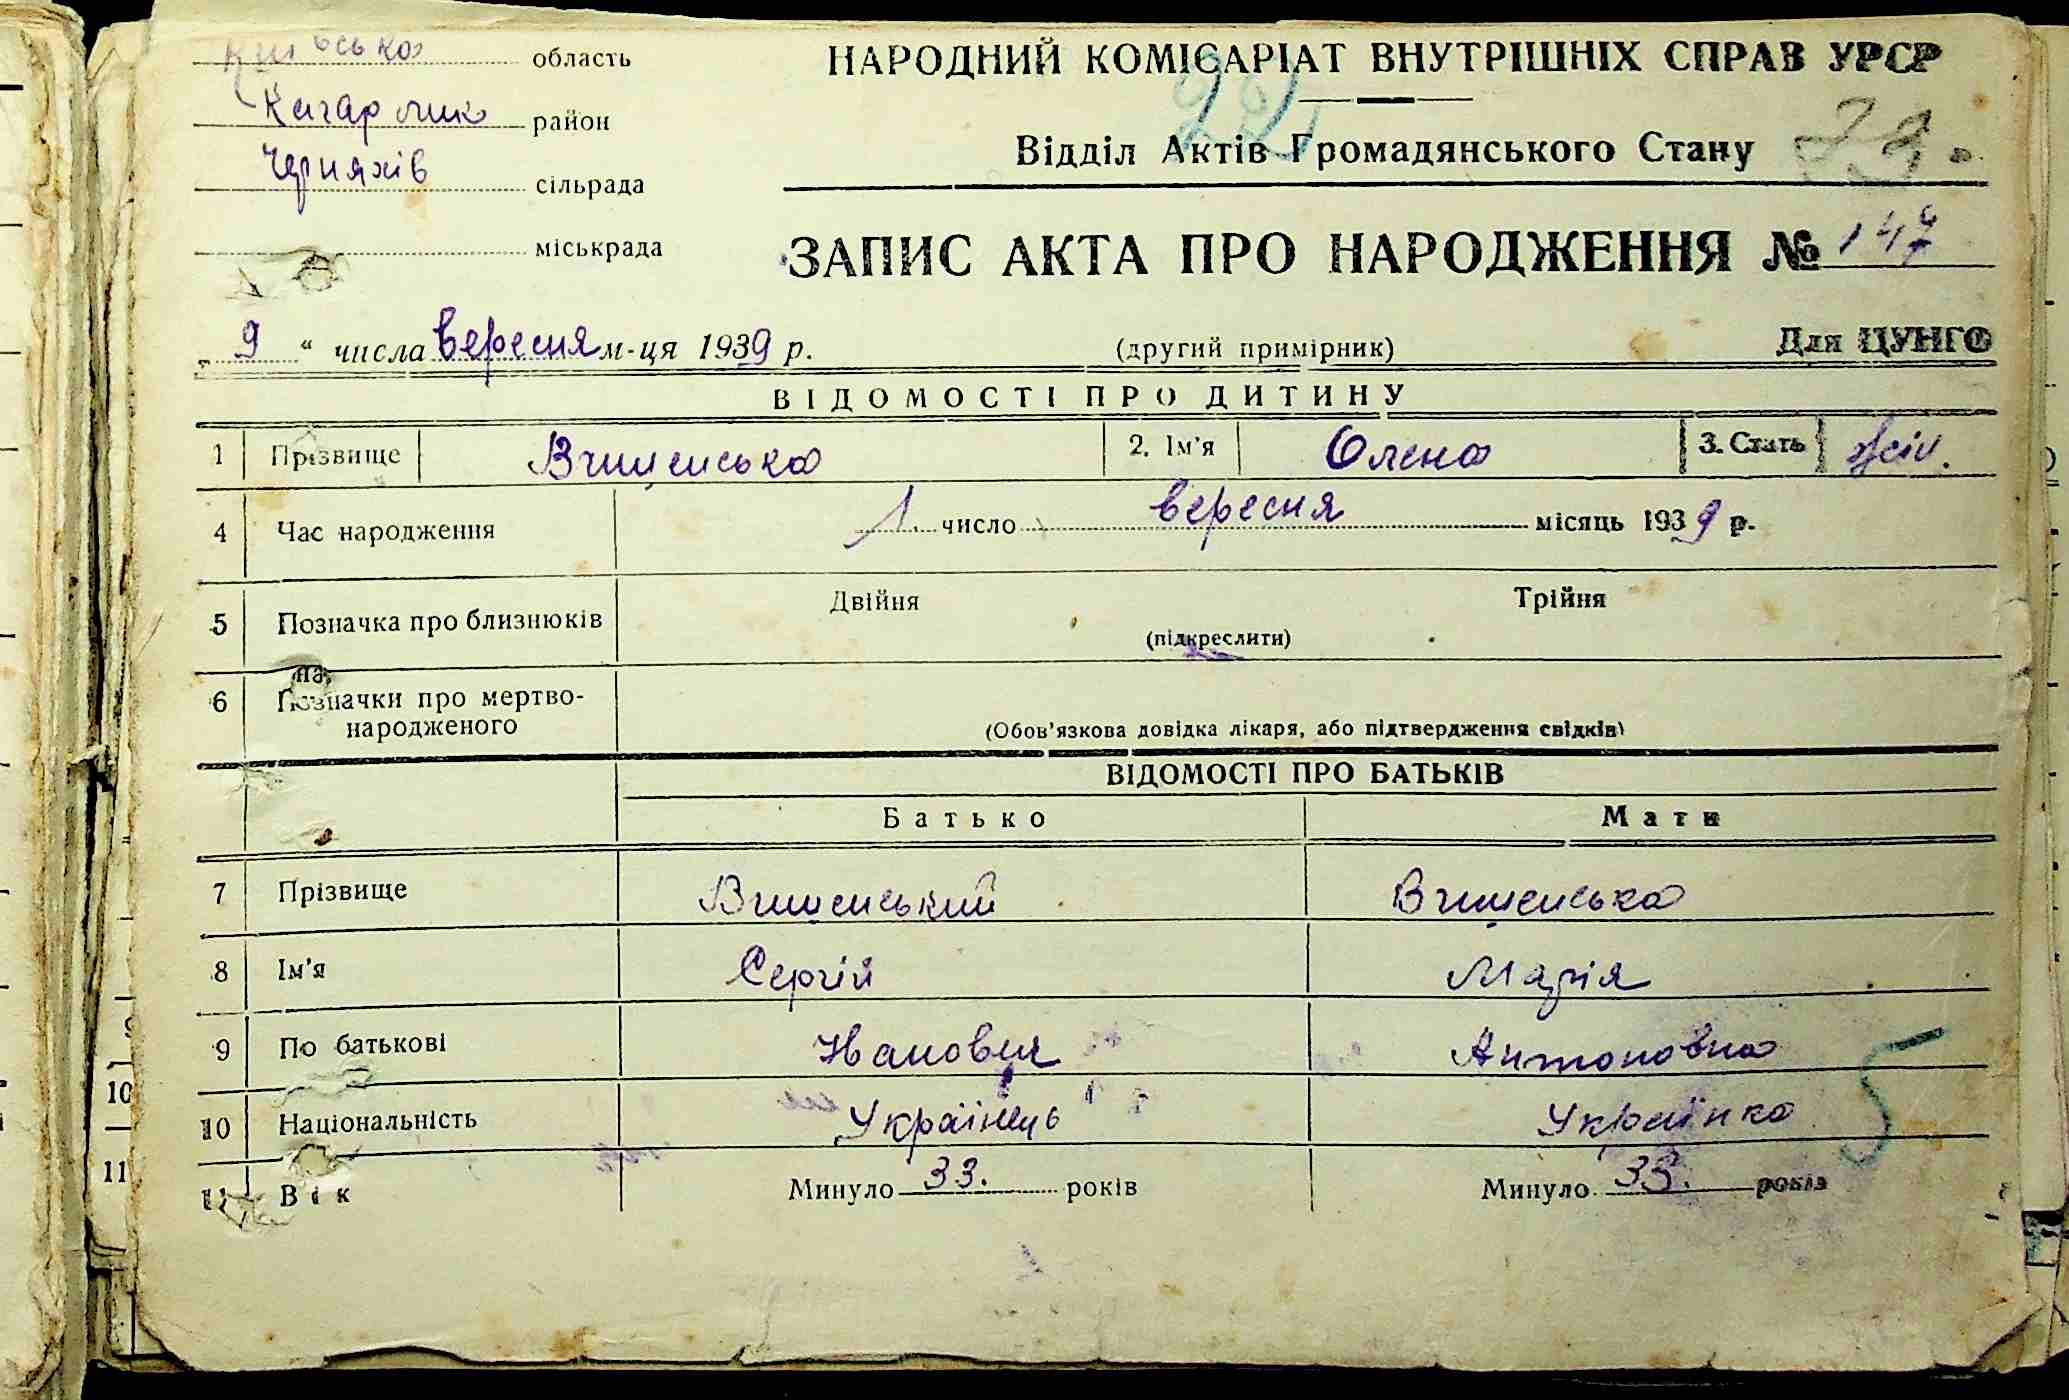 Київська область
Кагарлик район
Черняхів сільрада
міськрада
НАРОДНИЙ КОМІСАРІАТ ВНУТРІШНІХ СПРАВ УРСР
22
Відділ Актів Громадянського Стану
ЗАПИС АКТА ПРО НАРОДЖЕННЯ №
„ 9 “ числа вересня м-ця 1939 р.
(другий примірник)
Для ЦУНГО
ВІДОМОСТІ ПРО ДИТИНУ
1 Прізвище Вчишенська 2. Ім'я Олена 3. Стать жін.
4 Час народження 1. число вересня місяць 1939 р.
5 Позначка про близнюків Двійня Трійня
(підкреслити)
6 Позначки про мертво-
народженого (Обов'язкова довідка лікаря, або підтвердження свідків)
ВІДОМОСТІ ПРО БАТЬКІВ
Батько Мати
7 Прізвище Вчишенський Вчишенська
8 Ім'я Сергій Марія
9 По батькові Іванович Антоновна
10 Національність Українець Українка
5
11 Вік Минуло 33. років Минуло 33. років
10
11